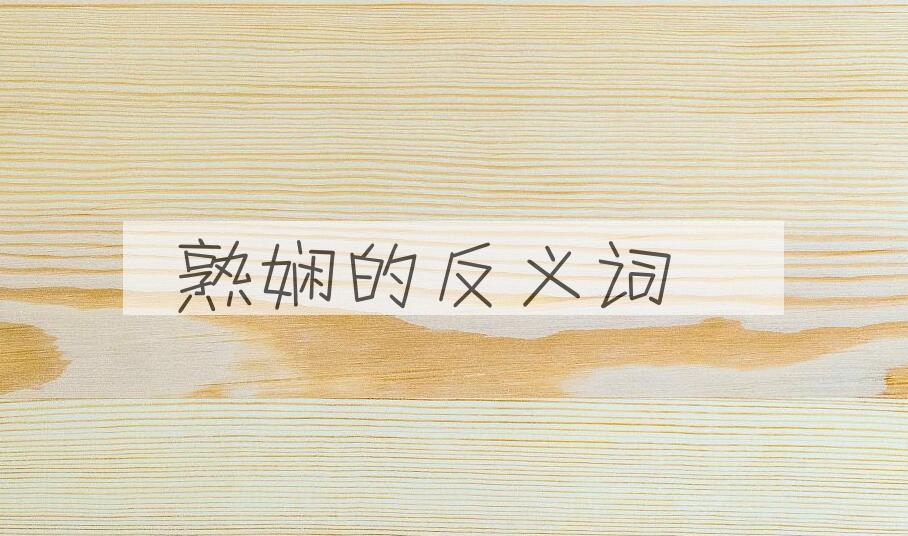 熟娴的反义词